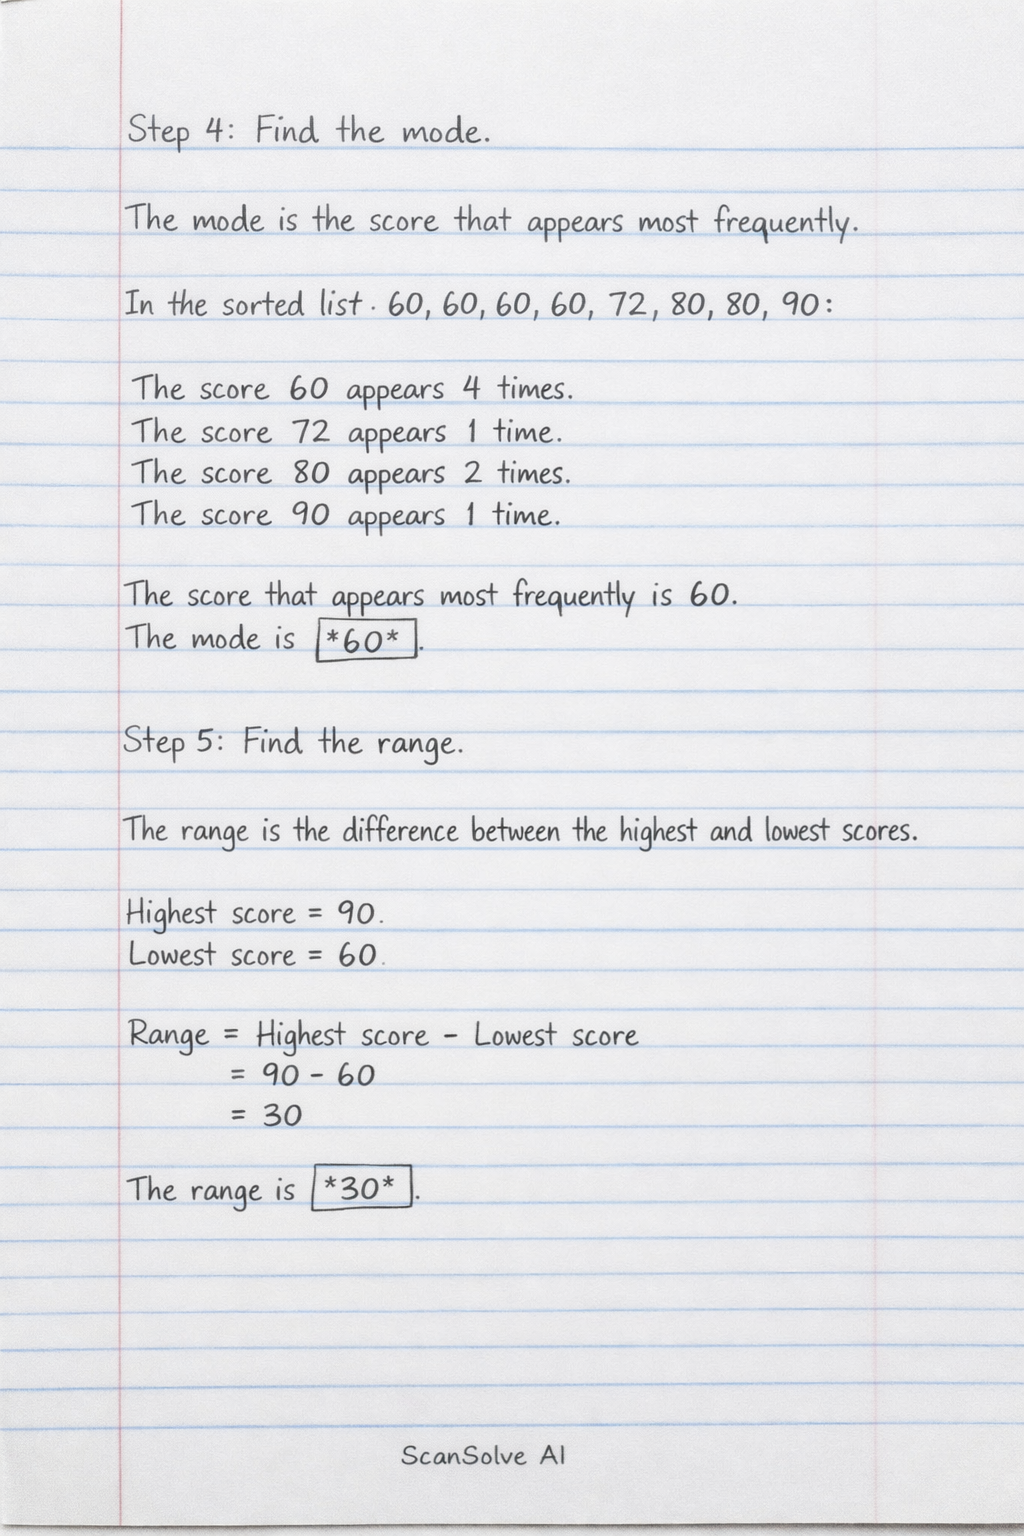 Step 4: Find the mode.
The mode is the score that appears most frequently.
In the sorted list · 60, 60, 60, 60, 72, 80, 80, 90:
The score 60 appears 4 times.
The score 72 appears 1 time.
The score 80 appears 2 times.
The score 90 appears 1 time.
The score that appears most frequently is 60.
The mode is *60*.
Step 5: Find the range.
The range is the difference between the highest and lowest scores.
Highest score = 90.
Lowest score = 60.
Range = Highest score - Lowest score
= 90 - 60
= 30
The range is *30*.
ScanSolve AI